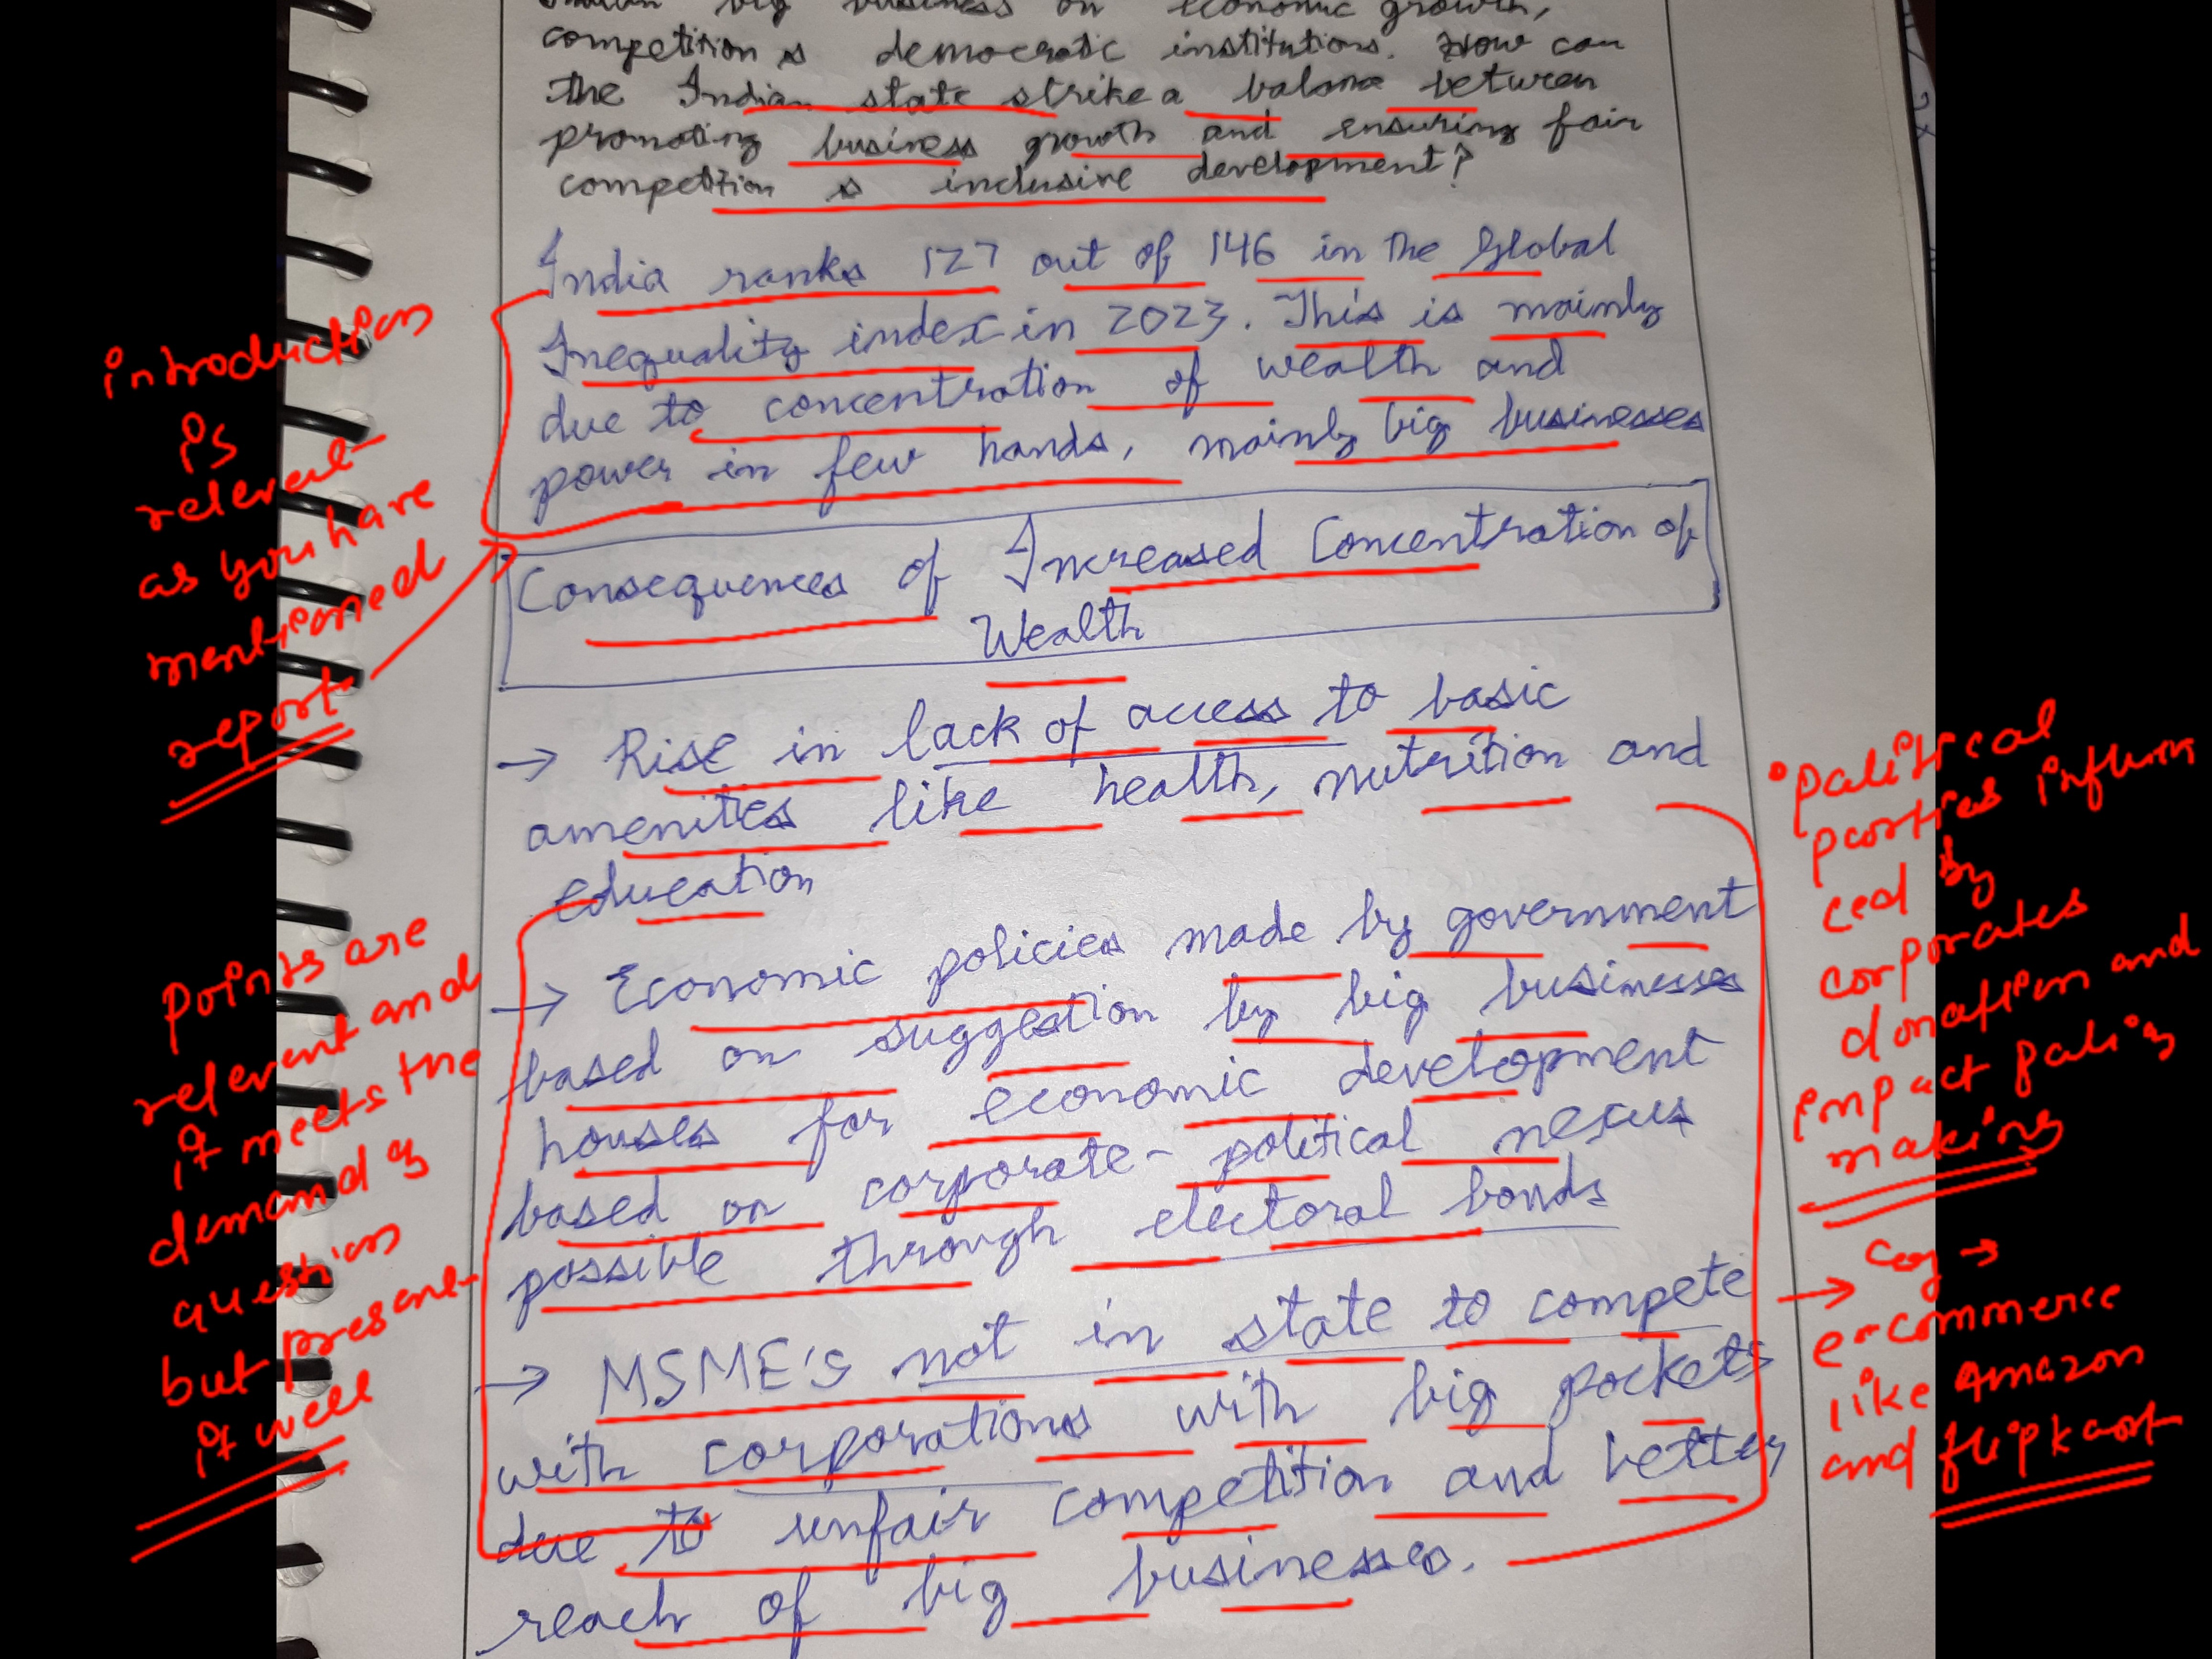 Indian big business on economic growth,
competition & democratic institutions. How can
the Indian state strike a balance between
promoting business growth and ensuring fair
competition & inclusive development?
India ranks 127 out of 146 in the Global
Inequality index in 2023. This is mainly
due to concentration of wealth and
power in few hands, mainly big businesses
Consequences of Increased Concentration of
Wealth
→ Rise in lack of access to basic
amenities like health, nutrition and
education
→ Economic policies made by government
based on suggestion by big business
houses for economic development
based on corporate-political nexus
possible through electoral bonds
→ MSME's not in state to compete
with corporations with big pockets
due to unfair competition and better
reach of big businesses.
introduction
is
relevent
as you have
mentioned
report
points are
relevent and
it meets the
demand of
question
but presene
it well
• political
parties influen
ced by
corporates
donation and
impact policy
making
→ eg →
e-commerce
like Amazon
and flipkart